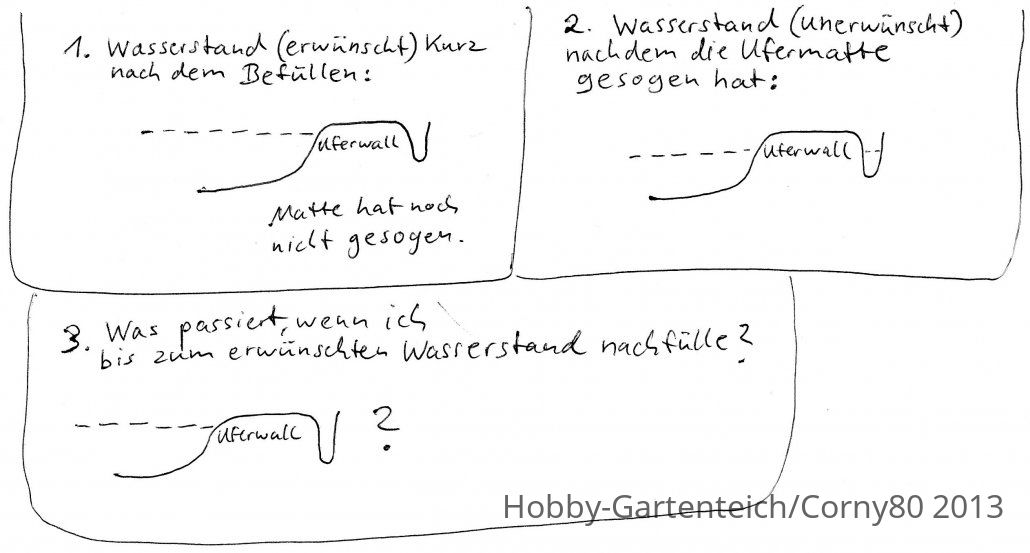 1. Wasserstand (erwünscht) Kurz
nach dem Befüllen:
Uferwall
Matte hat noch
nicht gesogen.
2. Wasserstand (unerwünscht)
nachdem die Ufermatte
gesogen hat:
Uferwall
3. Was passiert, wenn ich
bis zum erwünschten Wasserstand nachfülle?
Uferwall ?
Hobby-Gartenteich/Corny80 2013